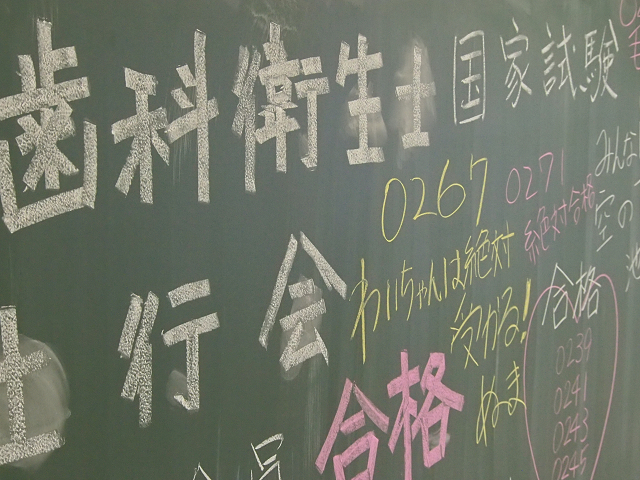 歯科衛生士国家試験
士行会
合格
0267
わいちゃんは絶対
受かる!
ぬま
0271
絶対合格
みんな
空の
合格
0239
0241
0243
0245